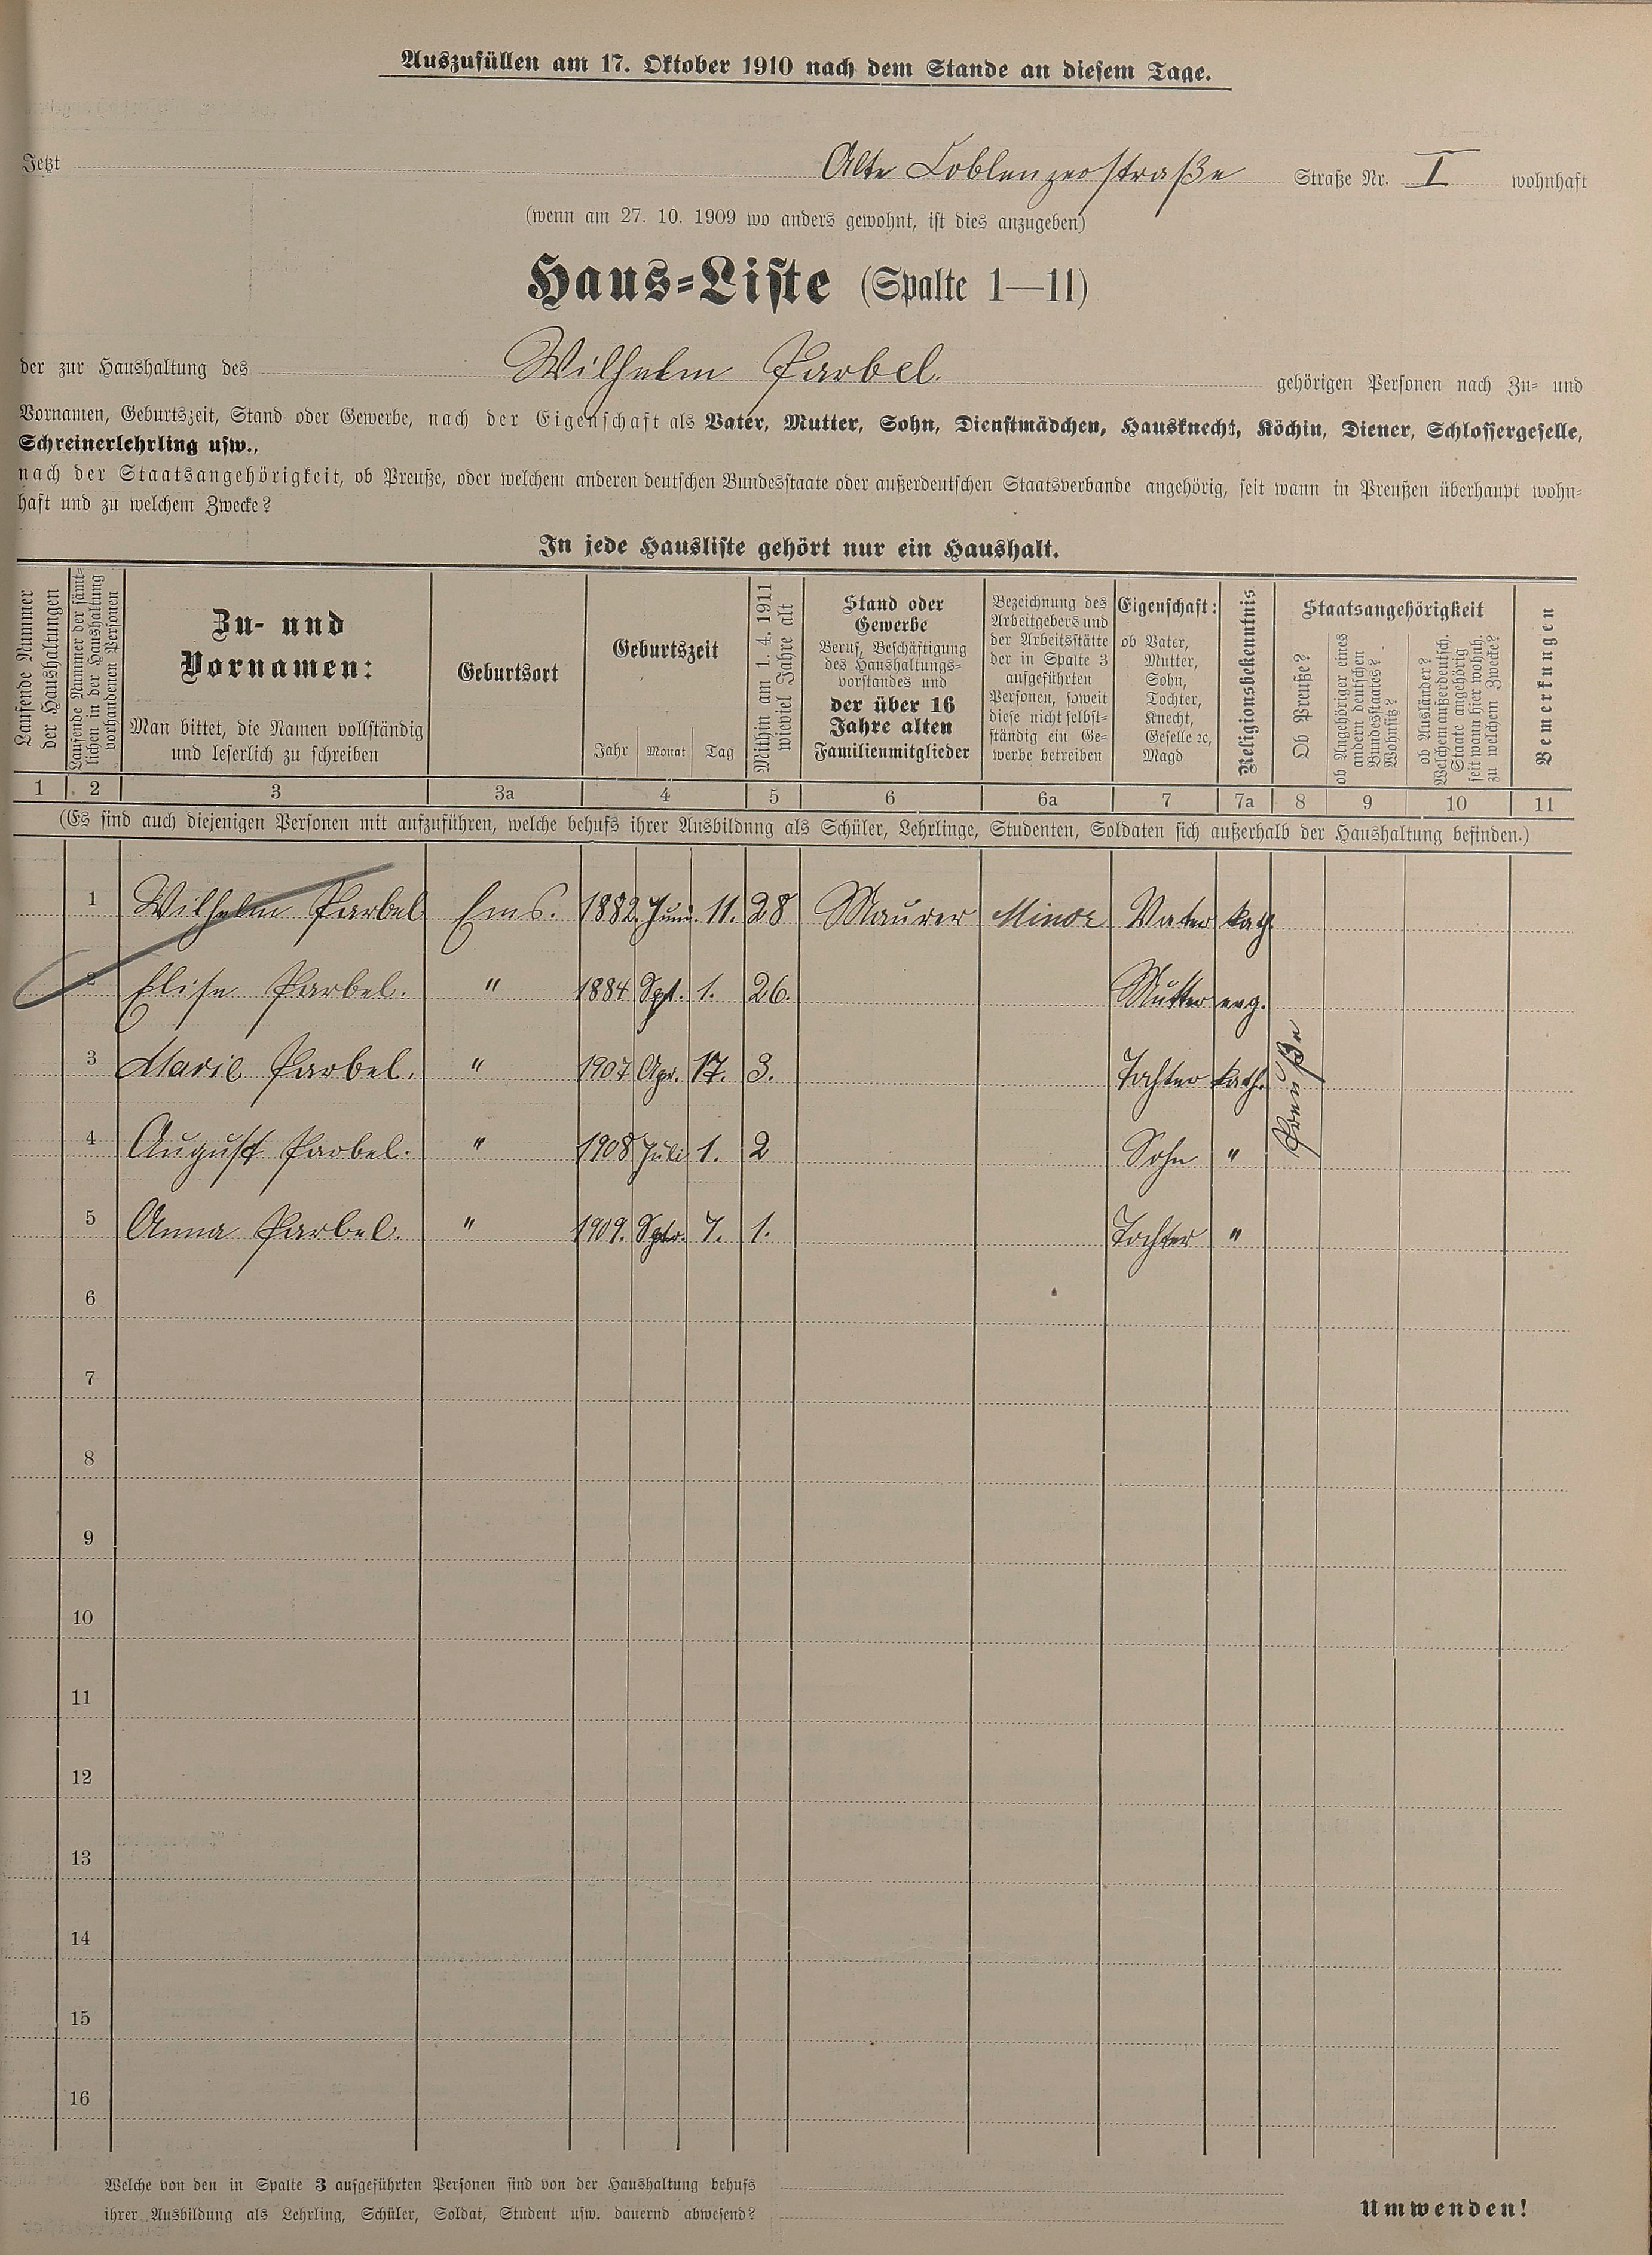 Auszufüllen am 17. Oktober 1910 nach dem Stande an diesem Tage.
Jetzt Alte Coblenzerstraße Straße Nr. I wohnhaft
(wenn am 27. 10. 1909 wo anders gewohnt, ist dies anzugeben)
Haus-Liste (Spalte 1—11)
der zur Haushaltung des Wilhelm Parbel. gehörigen Personen nach Zu- und
Vornamen, Geburtszeit, Stand oder Gewerbe, nach der Eigenschaft als Vater, Mutter, Sohn, Dienstmädchen, Hausknecht, Köchin, Diener, Schlossergeselle,
Schreinerlehrling usw.,
nach der Staatsangehörigkeit, ob Preuße, oder welchem anderen deutschen Bundesstaate oder außerdeutschen Staatsverbande angehörig, seit wann in Preußen überhaupt wohn-
haft und zu welchem Zwecke?
In jede Hausliste gehört nur ein Haushalt.
Laufende Nummer
der Haushaltungen
Laufende Nummer der sämt-
lichen in der Haushaltung
vorhandenen Personen
Zu- und
Vornamen:
Man bittet, die Namen vollständig
und leserlich zu schreiben
Geburtsort
Geburtszeit
Jahr Monat Tag
Mithin am 1. 4. 1911
wieviel Jahre alt
Stand oder
Gewerbe
Beruf, Beschäftigung
des Haushaltungs-
vorstandes und
der über 16
Jahre alten
Familienmitglieder
Bezeichnung des
Arbeitgebers und
der Arbeitsstätte
der in Spalte 3
aufgeführten
Personen, soweit
diese nicht selbst-
ständig ein Ge-
werbe betreiben
Eigenschaft:
ob Vater,
Mutter,
Sohn,
Tochter,
Knecht,
Geselle ꝛc,
Magd
Religionsbekenntnis
Staatsangehörigkeit
Ob Preuße?
ob Angehöriger eines
andern deutschen
Bundesstaates?
Wohnsitz?
ob Ausländer?
Welchem außerdeutsch.
Staate angehörig
seit wann hier wohnh.
zu welchem Zwecke?
Bemerkungen
1 2 3 3a 4 5 6 6a 7 7a 8 9 10 11
(Es sind auch diejenigen Personen mit aufzuführen, welche behufs ihrer Ausbildung als Schüler, Lehrlinge, Studenten, Soldaten sich außerhalb der Haushaltung befinden.)
1 Wilhelm Parbel Ems. 1882. Juni. 11. 28 Maurer Minor Vater kath.
2 Elise Parbel. " 1884 Spt. 1. 26. Mutter evg.
3 Marie Parbel. " 1907 Apr. 17. 3. Tochter kath.
Preuße
4 August Parbel. " 1908 Juli 1. 2 Sohn "
5 Anna Parbel. " 1909. Sptr. 7. 1. Tochter "
6
7
8
9
10
11
12
13
14
15
16
Welche von den in Spalte 3 aufgeführten Personen sind von der Haushaltung behufs
ihrer Ausbildung als Lehrling, Schüler, Soldat, Student usw. dauernd abwesend?
Umwenden!